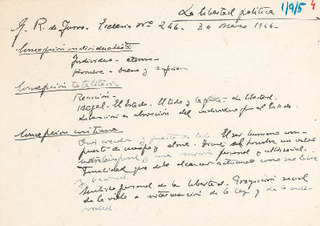 La libertad política 1/9/5 4
G. R. de Yurre. Ecclesia nº 246. 30 Marzo 1946.
Concepción individualista
Individuo - átomo -
Hombre - bueno y
Concepción totalitaria
Reacción -
Hegel. El Estado. El todo y la parte - de libertad.
absorción del individuo por el Estado.
Concepción cristiana
Dios creador y Ser humano com-
puesto de cuerpo y alma. el hombre un valor
y una misión personal y ultrasocial.
Finalidad que debe alcanzar actuando como ser libre
y racional.
Sentido personal de la libertad. Proyección social
de la vida e intervención de la ley y de la auto-
ridad